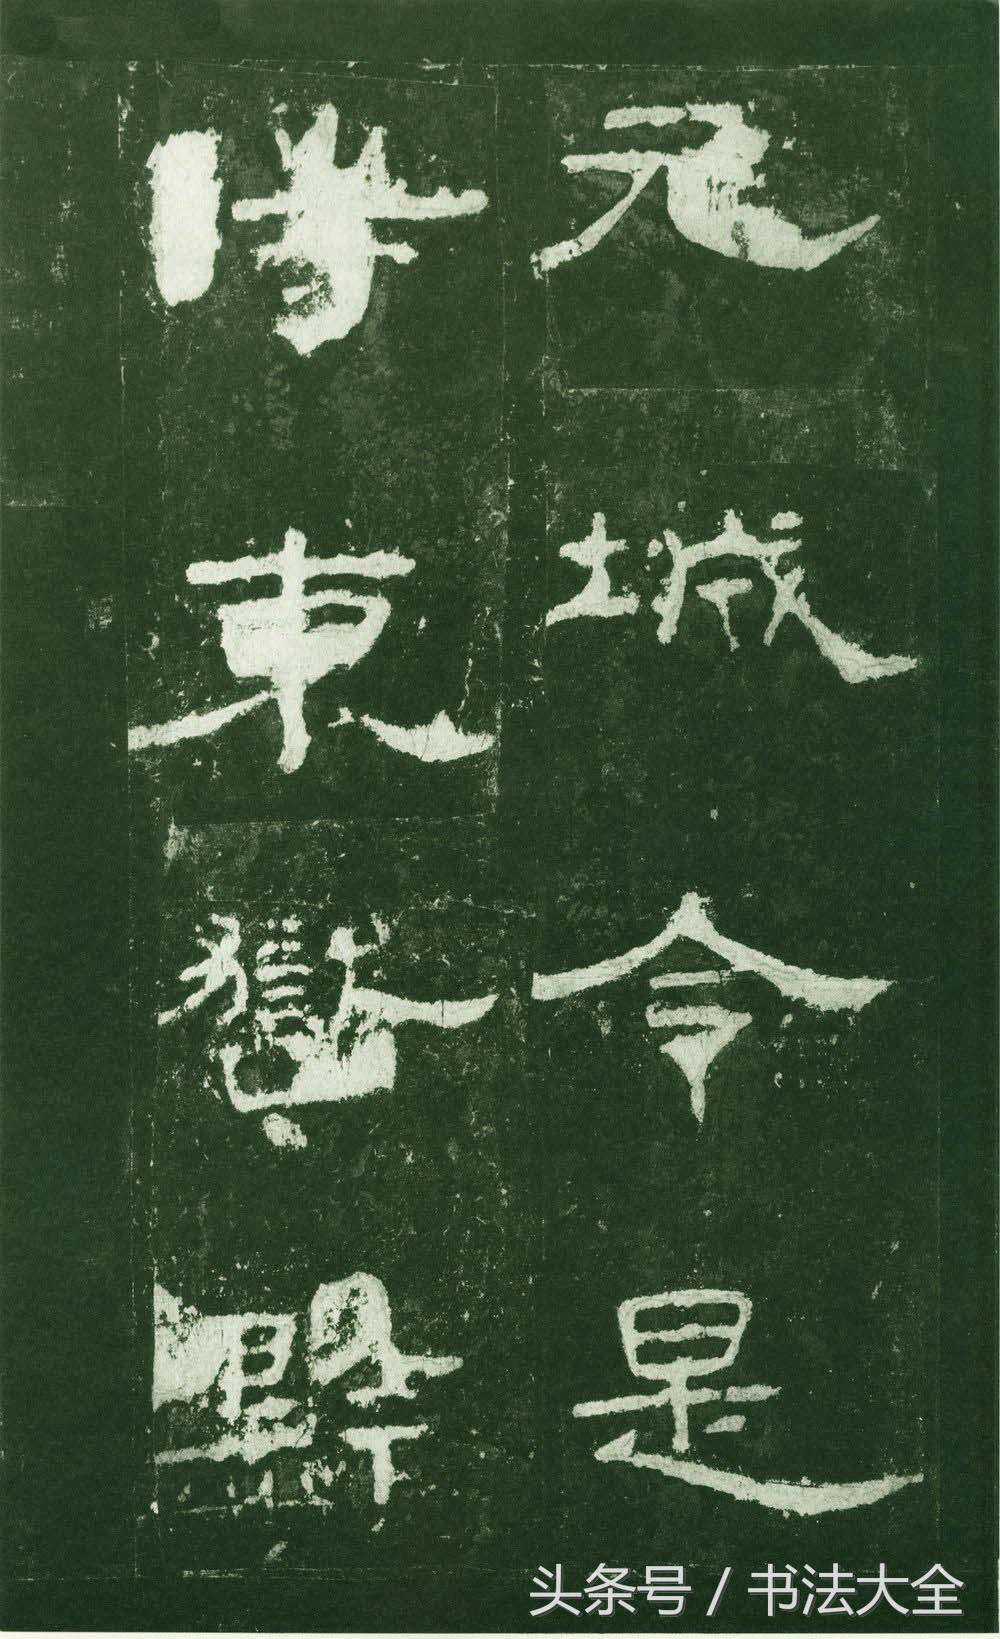 元城令是
時東嶽黔
头条号 / 书法大全